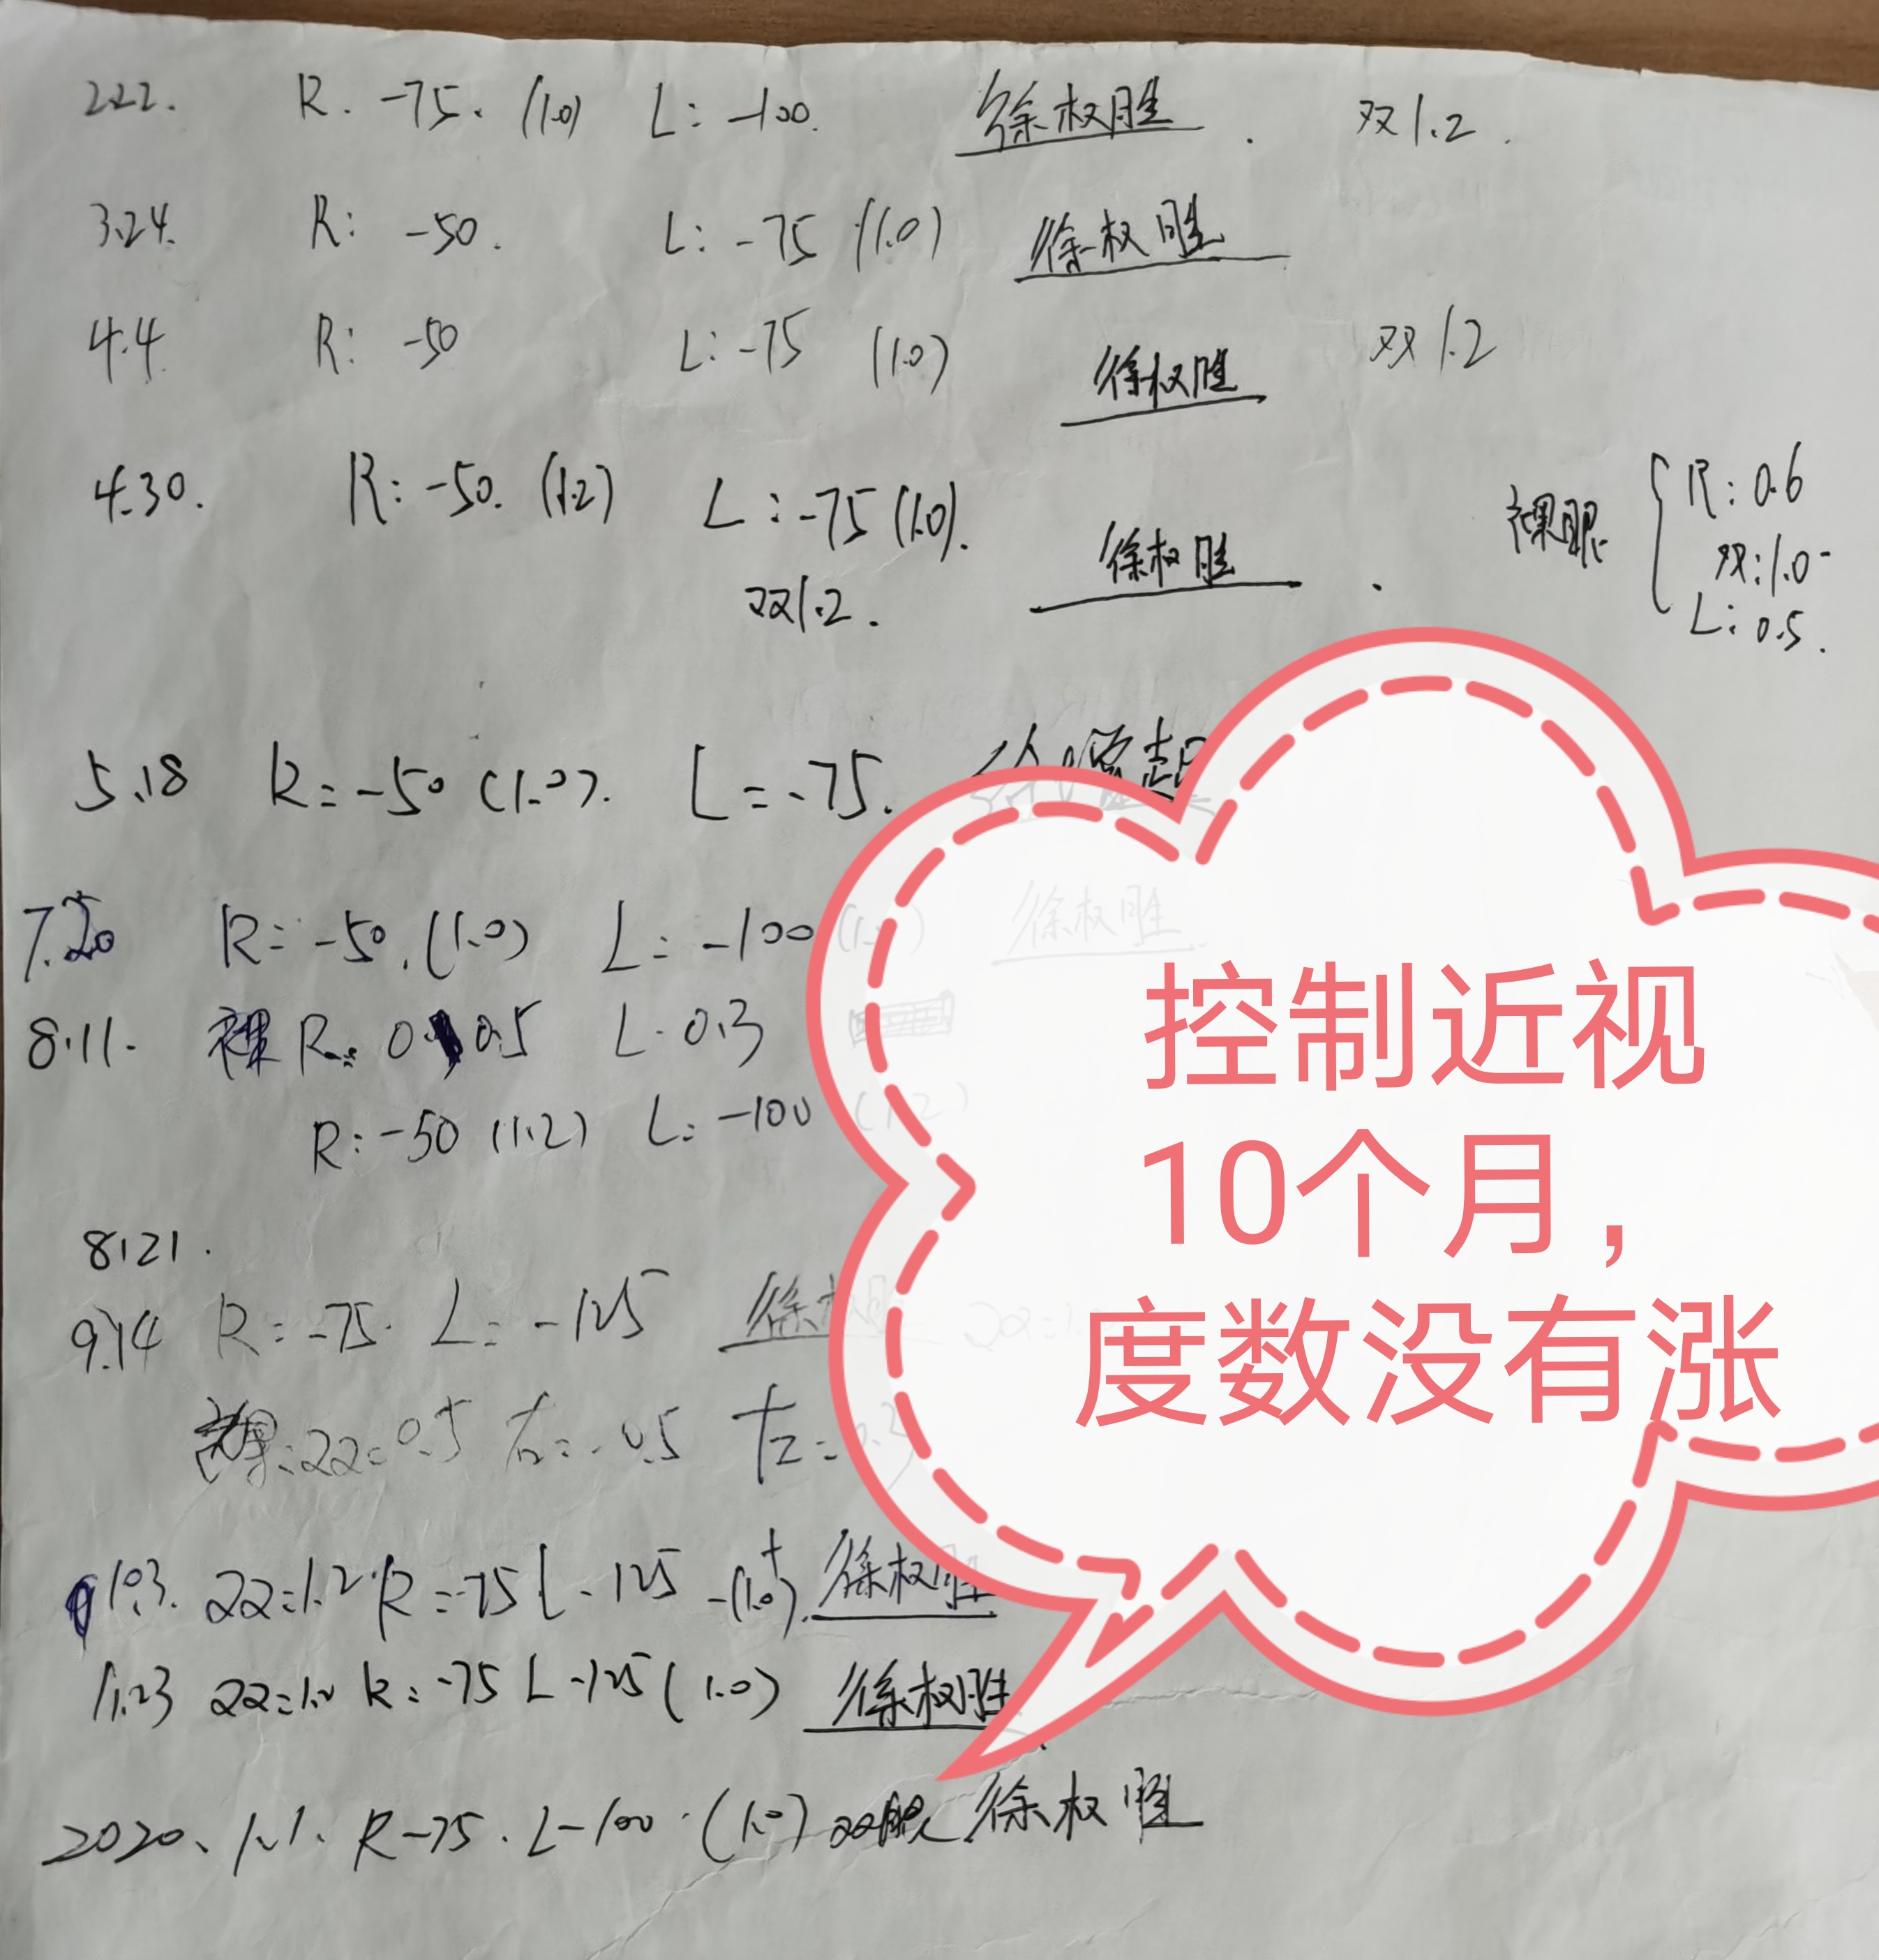 2.22. R. -75. (1.0) L: -100. 徐权胜. 双1.2.
3.24. R: -50. L: -75 (1.0) 徐权胜
4.4 R: -50 L: -75 (1.0) 徐权胜 双1.2
4.30. R: -50. (1.2) L: -75 (1.0). 徐权胜. 裸眼 R: 0.6
双: 1.0-
双1.2. L: 0.5.
5.18 R = -50 (1.0). L = -75.
7.20 R = -50. (1.0) L: -100 徐权胜
8.11. 裸 R: 0.5 L. 0.3
R: -50 (1.2) L: -100 (1.2)
8.21.
9.14 R = -75. L: -125 徐权胜
裸: 双=0.5 右=.0.5 左=0.3
10.3. 双=1.2. R = -75 L - 125 -(1.0)+. 徐权胜
11.23 双=1.2 R: -75 L -125 (1.0) 徐权胜
2020. 1.1. R -75. L -100. (1.0) 双眼 徐权胜
控制近视
10个月，
度数没有涨